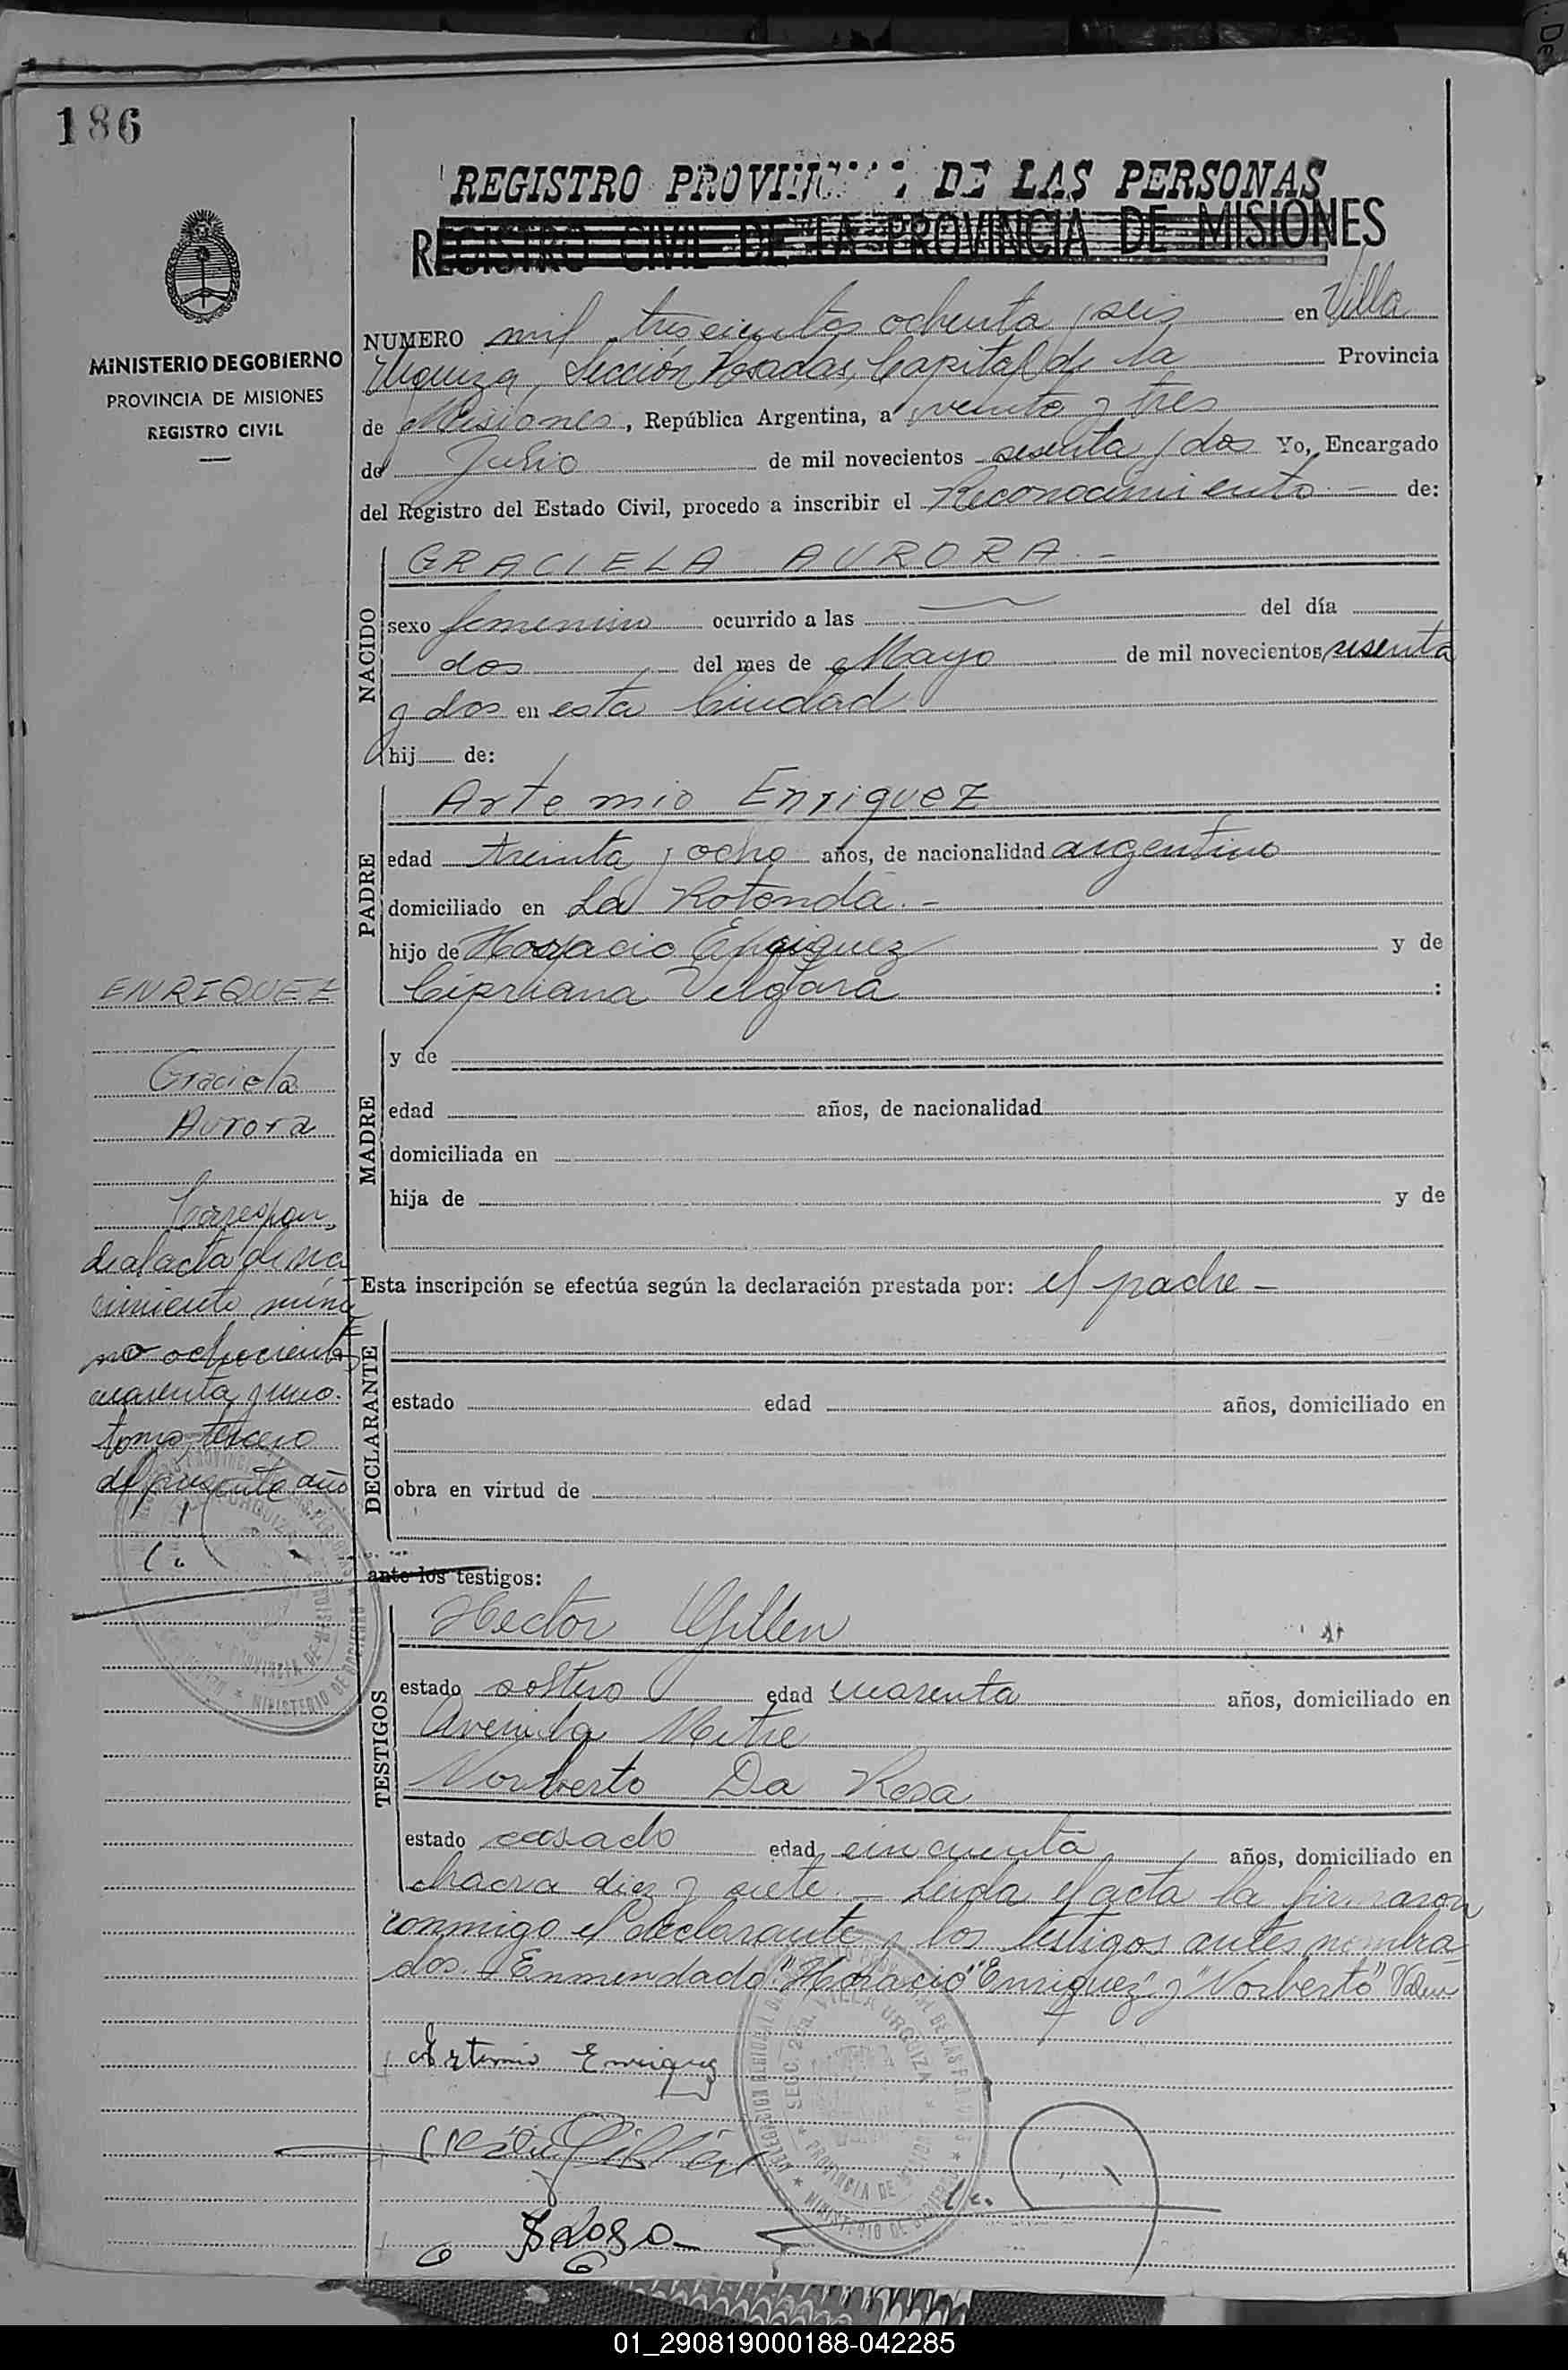 186
REGISTRO PROVINCIAL DE LAS PERSONAS
REGISTRO CIVIL DE LA PROVINCIA DE MISIONES
MINISTERIO DE GOBIERNO
PROVINCIA DE MISIONES
REGISTRO CIVIL
NUMERO mil trescientos ochenta y seis en Villa
Urquiza, Sección Posadas, Capital de la Provincia
de Misiones, República Argentina, a veinte y tres
de Julio de mil novecientos sesenta y dos Yo, Encargado
del Registro del Estado Civil, procedo a inscribir el Reconocimiento.- de:
NACIDO
GRACIELA AURORA.-
sexo femenino ocurrido a las del día
dos del mes de Mayo de mil novecientos sesenta
y dos en esta Ciudad
hij de:
PADRE
Artemio Enriquez
edad treinta y ocho años, de nacionalidad argentino
domiciliado en La Rotonda.-
hijo de Horacio Enriquez y de
Cipriana Vergara :
MADRE
y de
edad años, de nacionalidad
domiciliada en
hija de y de
Esta inscripción se efectúa según la declaración prestada por: el padre -
DECLARANTE
estado edad años, domiciliado en
obra en virtud de
ante los testigos:
TESTIGOS
Hector Gillen
estado soltero edad cuarenta años, domiciliado en
Avenida Mitre
Norberto Da Rosa
estado casado edad cincuenta años, domiciliado en
chacra diez y siete.- Leida el acta la firmaron
conmigo el declarante y los testigos antes nombra
dos. Enmendado: "Horacio" "Enriquez" y "Norberto" Valen
Artemio Enriquez
ENRIQUEZ
Graciela
Aurora
Correspon
de al acta de na
cimiento núme
ro ochocientos
cuarenta y uno.
tomo tercero
del presente año
SECC. 2da. VILLA URQUIZA
PROVINCIA DE MISIONES
MINISTERIO DE GOBIERNO
01_290819000188-042285